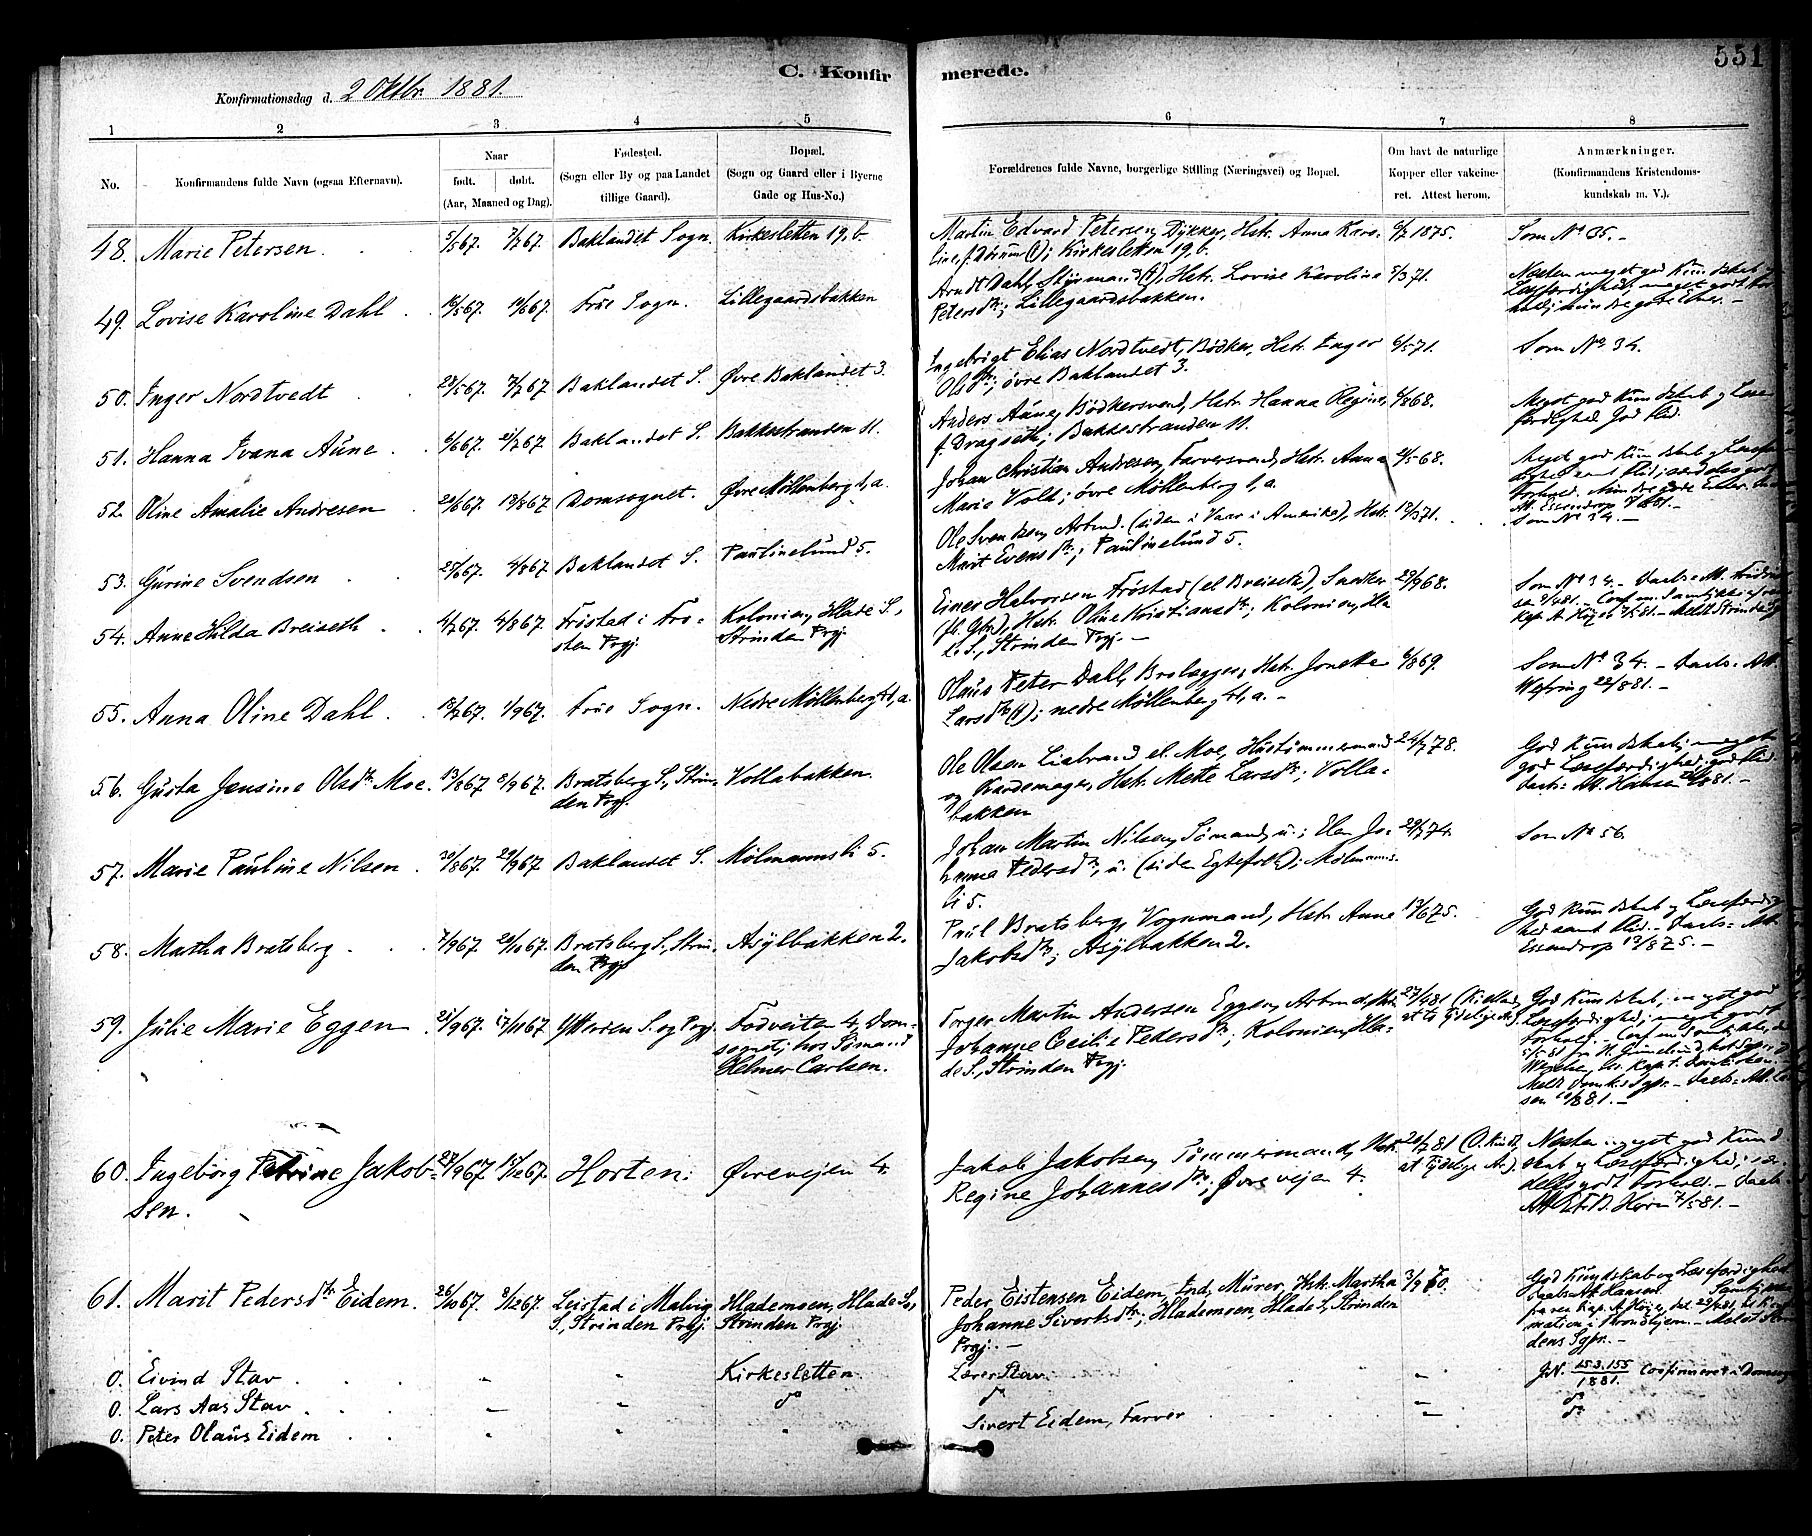 551
C. Konfirmerede.
Konfirmationsdag d. 2 Oktbr. 1881.
1 2 3 4 5 6 7 8
No.
Konfirmandens fulde Navn (ogsaa Efternavn).
Naar
født. døbt.
(Aar, Maaned og Dag).
Fødested.
(Sogn eller By og paa Landet
tillige Gaard).
Bopæl.
(Sogn og Gaard eller i Byerne
Gade og Hus-No.)
Forældrenes fulde Navne, borgerlige Stilling (Næringsvei) og Bopæl.
Om havt de naturlige
Kopper eller vakcine-
ret. Attest herom.
Anmærkninger.
(Konfirmandens Kristendoms-
kundskab m. V.).
48. Marie Petersen. 5/5 67. 7/7 67. Baklandet Sogn. Kirkesletten 19, b.
Martin Edvard Petersen, Dykker, Hstr. Anna Karo-
line, f. Dørum (†); Kirkesletten 19, b.
6/7 1875. Som No 35.-
49. Lovise Karoline Dahl. 16/5 67. 19/6 67. Frue Sogn. Lillegaardsbakken
Arndt Dahl, Styrmand (†), Hstr. Lovise Karoline
Petersdtr; Lillegaardsbakken.
5/3 71. Næsten meget god Kundskab
Læsefærdighed, meget godt For-
hold; mindre gode Evner.-
50. Inger Nordtvedt 28/5 67. 7/7 67 Baklandet S. Øvre Baklandet 3.
Ingebrigt Elias Nordtvedt, Bødker, Hstr. Inger
Olsdtr; øvre Baklandet 3.
6/5 71. Som No 34.
51. Hanna Ivana Aune. 6/6 67. 21/7 67 Baklandet S. Bakkestranden 11.
Anders Aune, Bødkersvend, Hstr. Hanna Regine,
f. Dragseth; Bakkestranden 11.
4/8 68. Meget god Kundskab og Læse-
færdighed. God Flid.
52. Oline Amalie Andresen 20/6 67. 13/8 67 Domsognet. Øvre Møllenberg 1, a.
Johan Christian Andresen, Farversvend, Hstr. Anna
Marie Vold; øvre Møllenberg 1, a.
4/5 68. Meget god Kundskab og Læsefær-
dighed samt Flid; særdeles godt
Forhold. Mindre gode Evner.
Essendrop
53. Gurine Svendsen 25/6 67. 4/8 67. Baklandet S. Paulinelund 5.
Ole Svendsen, Arbmd. (siden i Vaar i Amerika), Hstr.
Marit Evensdtr; Paulinelund 5.
13/3 71. Som No 34.-
54. Anne Hilda Breiseth. 4/7 67. 4/8 67. Frøstad i Fro-
sten Prgj. Kolonien, Hlade S.,
Strinden Prgj.
Einer Halvorsen Frøstad (el Breiseth), Snedker
(fh. Gbr.), Hstr. Oline Kristiansdtr; Kolonien, Hla-
de S., Strinden Prgj.-
29/9 68. Som No 34.-
55. Anna Oline Dahl. 18/7 67. 1/9 67. Frue Sogn. Nedre Møllenberg 41, a.
Olaus Peter Dahl, Brolægger, Hstr. Jonetta
Larsdtr (†); nedre Møllenberg 41, a.-
6/8 69. Som No 34.- Daab: Att.
Wefring 22/8 81.-
56. Gusta Jensine Olsdtr Moe. 13/8 67 8/9 67. Bratsberg S., Strin-
den Prgj. Vollabakken.
Ole Olsen Liabrand el. Moe, Hustømmermand
og Kardemager, Hstr. Mette Larsdtr; Volla-
bakken
24/7 78. God Kundskab, meget
god Læsefærdighed; god Flid.
Daab: Att. Hansen
57. Marie Pauline Nilsen. 31/8 67. 29/9 67. Baklandet S. Mølmannsli 5.
Johan Martin Nilsen, Sømand, u.; Elen Jo-
hanna Pedersdtr, u. (siden Egtefolk); Mølmanns-
li 5.
29/7 74. Som No 56.
58. Martha Bratsberg. 7/9 67. 20/10 67. Bratsberg S., Strin-
den Prgj. Asylbakken 2.
Paul Bratsberg, Vognmand, Hstr. Anne
Jakobsdtr; Asylbakken 2.
13/6 75. God Kundskab og Læsefærdig-
hed samt Flid.- Daab: Att.
Essendrop 13/8 75.-
59. Julie Marie Eggen 21/9 67. 17/11 67 Ytterøen S. og Prgj. Fodveiten 4, Dom-
sognet; hos Sømand
Helmer Carlsen.
Torger Martin Andersen Eggen, Arbmd, Hstr.
Johanne Cecilie Pedersdtr; Kolonien, Hla-
de S., Strinden Prgj.
27/4 81 (Kielland,
at to tydelige Ar). God Kundskab; meget god
Læsefærdighed; meget godt
Forhold.-
60. Ingeborg Petrine Jakob-
sen. 28/9 67 15/12 67. Horten. Øvreveien 4.
Jakob Jakobsen, Tømmermand, Hstr.
Regine Johannesdtr; Øvreveien 4.
20/7 81 (O. Lund,
at tydelige Ar). Næsten meget god Kund-
skab og Læsefærdighed; sær-
deles godt Forhold.- Daab:
Horn 7/5 81.-
61. Marit Pedersdtr Eidem. 26/10 67. 8/12 67. Leistad i Malvig
S., Strinden Prgj. Hlademoen, Hlade S.,
Strinden Prgj
Peder Eistensen Eidem, Ind., Murer, Hstr. Martha
Johanne Sivertsdtr; Hlademoen, Hlade S., Strinden
Prgj.-
3/9 70. God Kundskab og Læsefærdighed
mation i Trondhjem.- Meldt Strin-
dens Sgpr.-
0. Eivind Stav. Kirkesletten. Lærer Stav. J.N. 153.155/1881. Confirmeret i Domsogn
0. Lars Aas Stav. do do do
0. Peter Olaus Eidem Sivert Eidem, Farver do